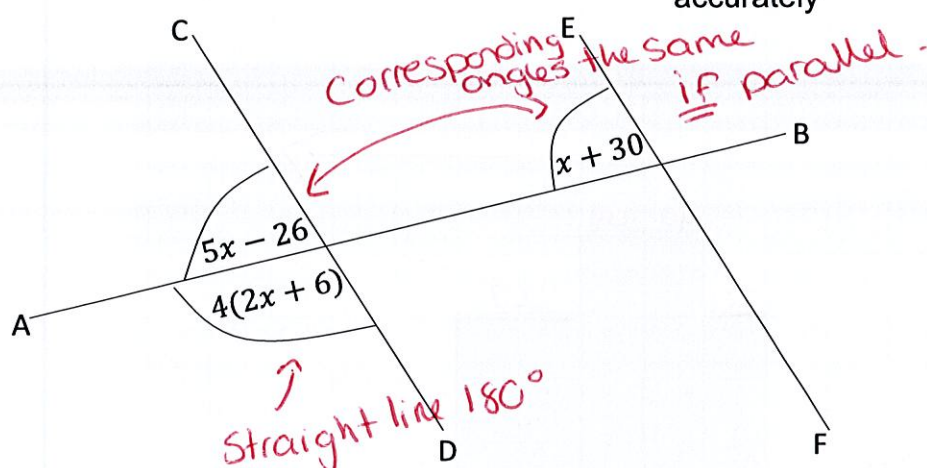 accurately
C
E
Corresponding
angles the same
if parallel.
B
x + 30
5x − 26
4(2x + 6)
A
Straight line 180°
D
F